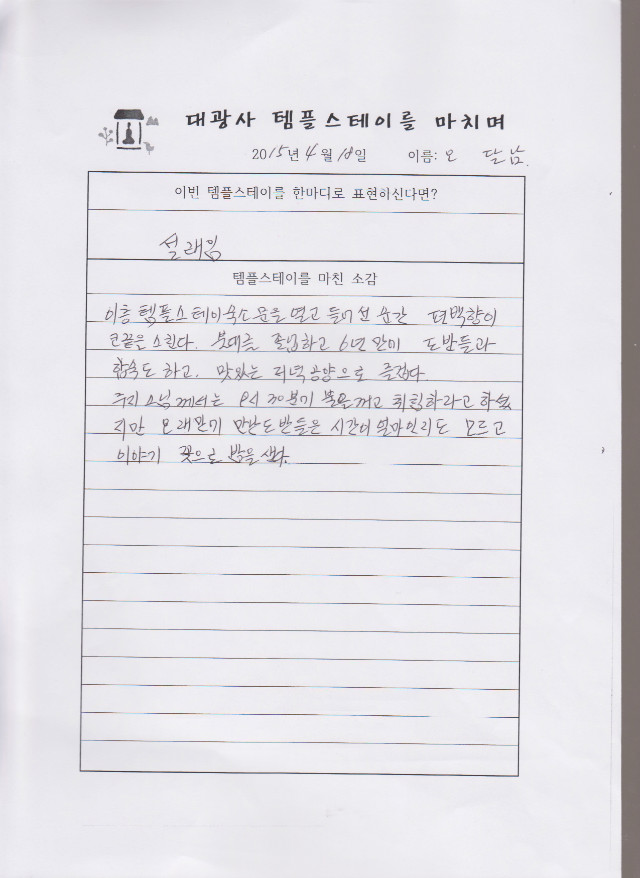 대광사 템플스테이를 마치며
2015년 4월 18일 이름: 오 달남.
이번 템플스테이를 한마디로 표현하신다면?
설래임
템플스테이를 마친 소감
이층 템플스테이숙소 문을 열고 들어선 순간 편백향이
코끝을 스친다. 불대를 졸업하고 6년만에 도반들과
합숙도 하고, 맛있는 저녁공양으로 즐겁다.
주지스님께서는 9시 30분기 불을끄고 취침하라고 하셨
지만 오래만기 만난도반들은 시간이얼마인리도 모르고
이야기 꽃으로 밤을 샜다.